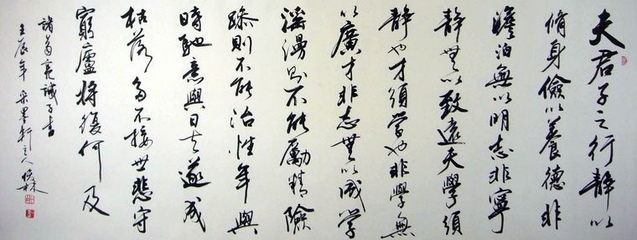 夫君子之行静以
脩身儉以養德非
澹泊無以明志非寧
静無以致遠夫學須
静也才須學也非學無
以廣才非志無以成学
淫漫则不能勵精險
躁則不能治性年與
時馳意與日去遂成
枯落多不接世悲守
窮廬將復何及
諸葛亮誡子書
壬辰年采墨軒主人